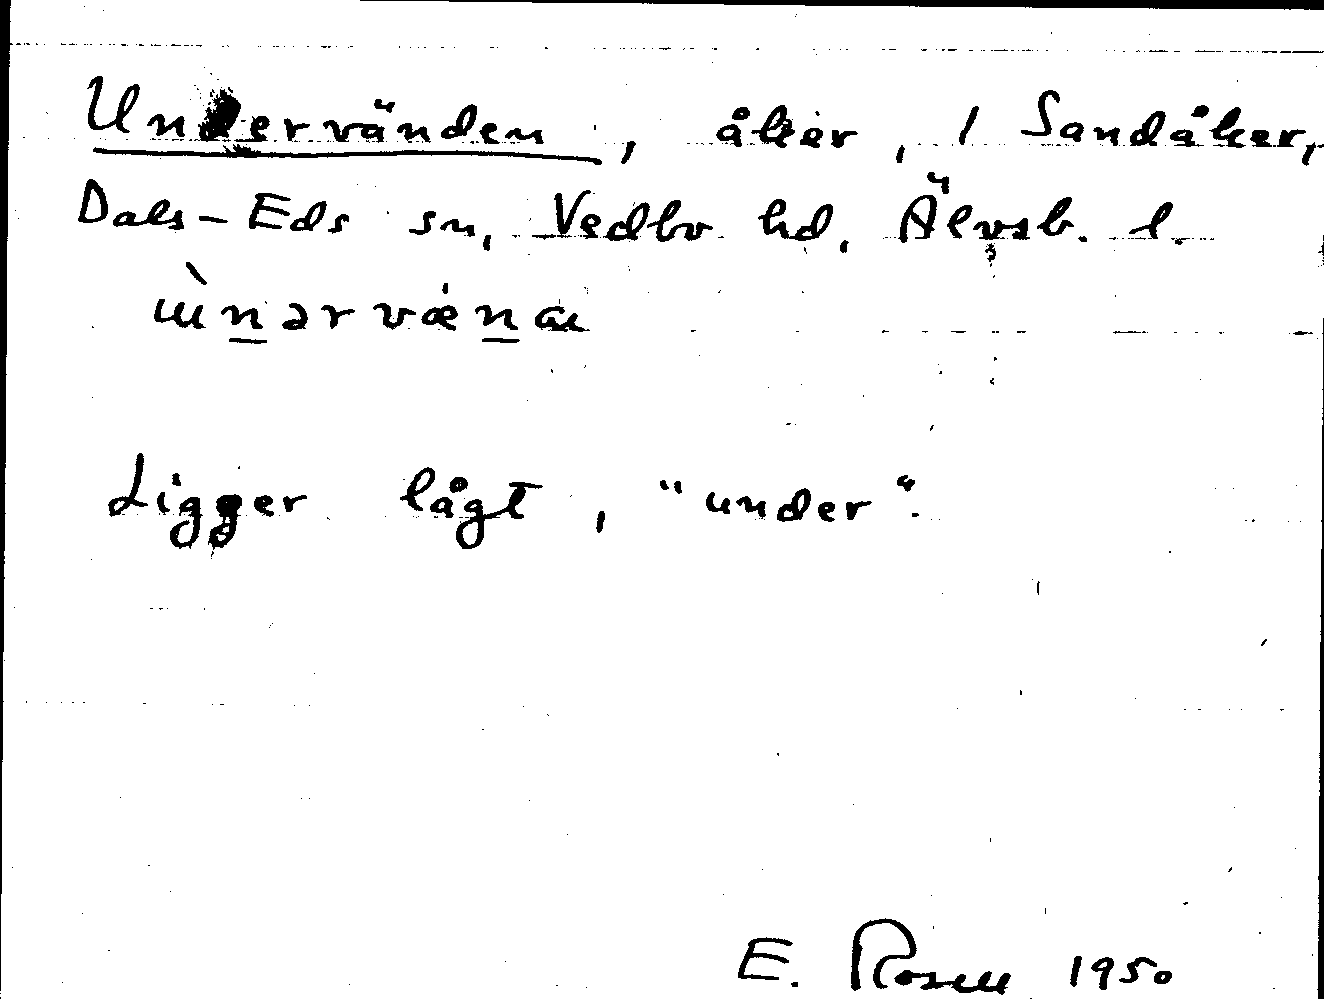 Undervänden, åker, 1 Sandåker,
Dals-Eds sn, Vedbo hd, Älvsb. l.
ɯ̀nərvænɑ
Ligger lågt, "under".
E. Rosell 1950